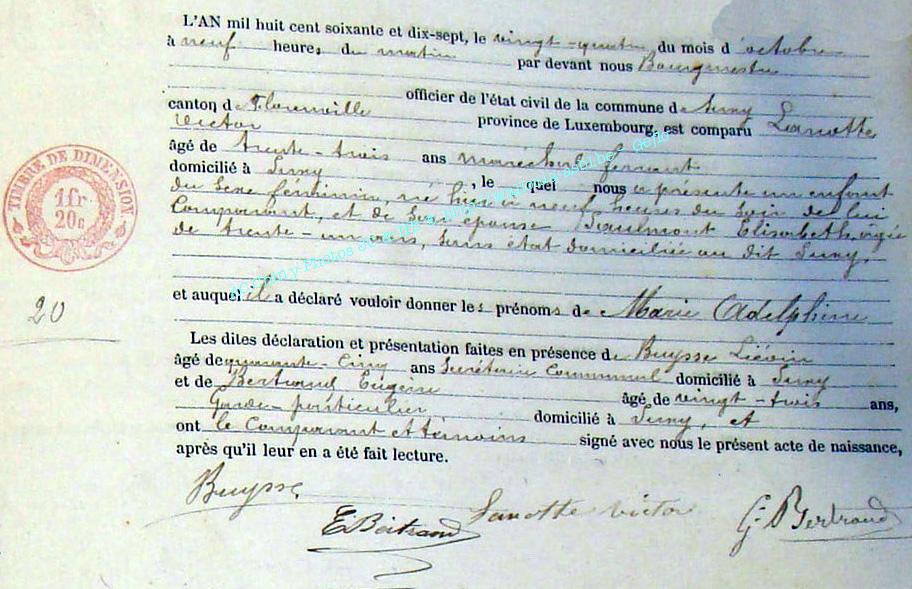 L'AN mil huit cent soixante et dix-sept, le vingt-quatre du mois d'octobre
à neuf heures du matin par devant nous Bourgmestre
officier de l'état civil de la commune de Suny
canton de Florenville province de Luxembourg, est comparu Lanotte
Victor
âgé de trente-trois ans marechal ferrant
domicilié à Suny, le quel nous a présenté un enfant
du Sexe féminin, né hier à neuf heures du soir de lui
Comparant, et de son épouse Saulmont Elisabeth, agée
de trente-un ans, sans état domiciliée au dit Suny,
et auquel il a déclaré vouloir donner les prénoms de Marie Adelphine
Les dites déclaration et présentation faites en présence de Buysse Liévin
âgé de quarante-cinq ans Secrétaire Communal domicilié à Suny
et de Bertrand Eugène âgé de vingt-trois ans,
Garde-particulier domicilié à Suny, et
ont le Comparant et témoins signé avec nous le présent acte de naissance,
après qu'il leur en a été fait lecture.
TIMBRE DE DIMENSION.
1fr
20c
20
Buysse
E Bertrand
Lanotte victor
G. Bertrand